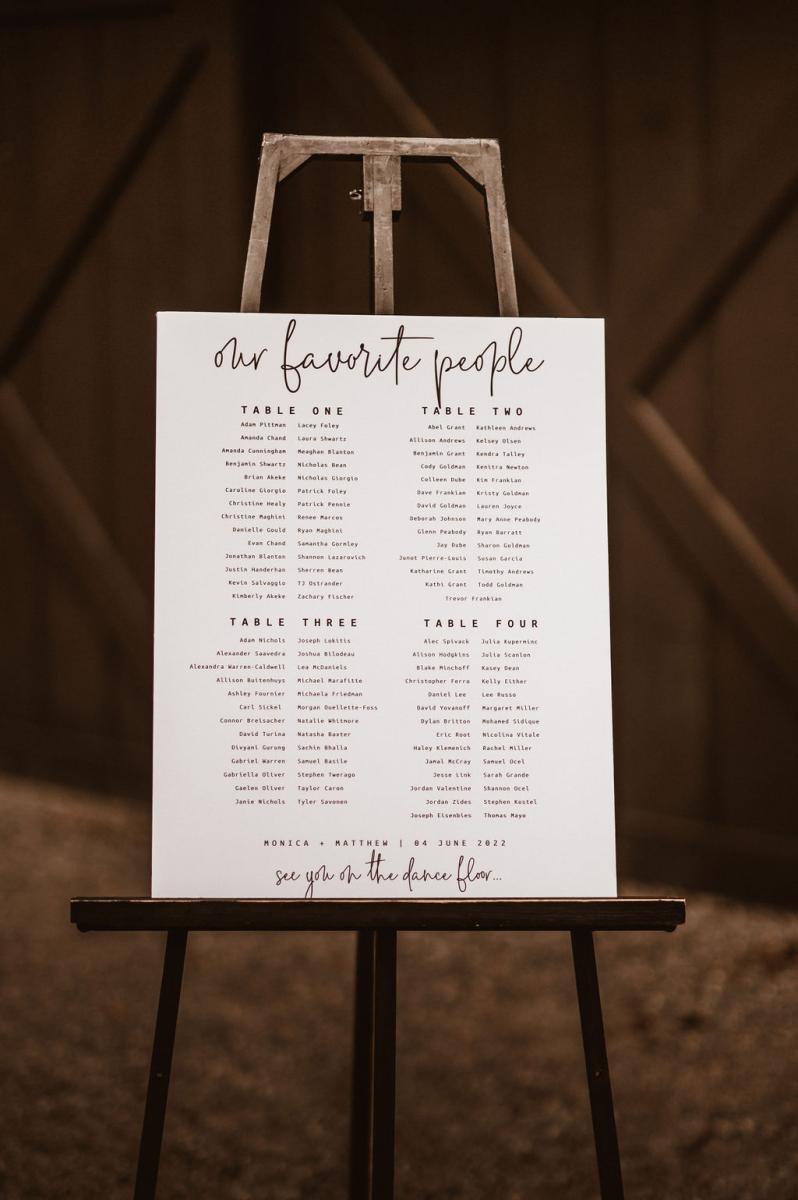 our favorite people
TABLE ONE
Adam Pittman Lacey Foley
Amanda Chand Laura Shwartz
Amanda Cunningham Meaghan Blanton
Benjamin Shwartz Nicholas Bean
Brian Akeke Nicholas Giorgio
Caroline Giorgio Patrick Foley
Christine Healy Patrick Pennie
Christine Maghini Renee Marcos
Danielle Gould Ryan Maghini
Evan Chand Samantha Gormley
Jonathan Blanton Shannon Lazarovich
Justin Handerhan Sherren Bean
Kevin Salvaggio TJ Ostrander
Kimberly Akeke Zachary Fischer
TABLE TWO
Abel Grant Kathleen Andrews
Allison Andrews Kelsey Olsen
Benjamin Grant Kendra Talley
Cody Goldman Kenitra Newton
Colleen Dube Kim Frankian
Dave Frankian Kristy Goldman
David Goldman Lauren Joyce
Deborah Johnson Mary Anne Peabody
Glenn Peabody Ryan Barratt
Jay Dube Sharon Goldman
Junot Pierre-Louis Susan Garcia
Katharine Grant Timothy Andrews
Kathi Grant Todd Goldman
Trevor Frankian
TABLE THREE
Adam Nichols Joseph Lokitis
Alexander Saavedra Joshua Bilodeau
Alexandra Warren-Caldwell Lea McDaniels
Allison Buitenhuys Michael Marafitte
Ashley Fournier Michaela Friedman
Carl Sickel Morgan Ouellette-Foss
Connor Breisacher Natalie Whitmore
David Turina Natasha Baxter
Divyani Gurung Sachin Bhalla
Gabriel Warren Samuel Basile
Gabriella Oliver Stephen Twerago
Gaelen Oliver Taylor Caron
Janie Nichols Tyler Savonen
TABLE FOUR
Alec Spivack Julia Kuperminc
Alison Hodgkins Julia Scanlon
Blake Minchoff Kasey Dean
Christopher Ferro Kelly Either
Daniel Lee Lee Russo
David Yovanoff Margaret Miller
Dylan Britton Mohamed Sidique
Eric Root Nicolina Vitale
Haley Klemenich Rachel Miller
Jamal McCray Samuel Ocel
Jesse Link Sarah Grande
Jordan Valentine Shannon Ocel
Jordan Zides Stephen Kostel
Joseph Eisenbies Thomas Mayo
MONICA + MATTHEW | 04 JUNE 2022
see you on the dance floor...